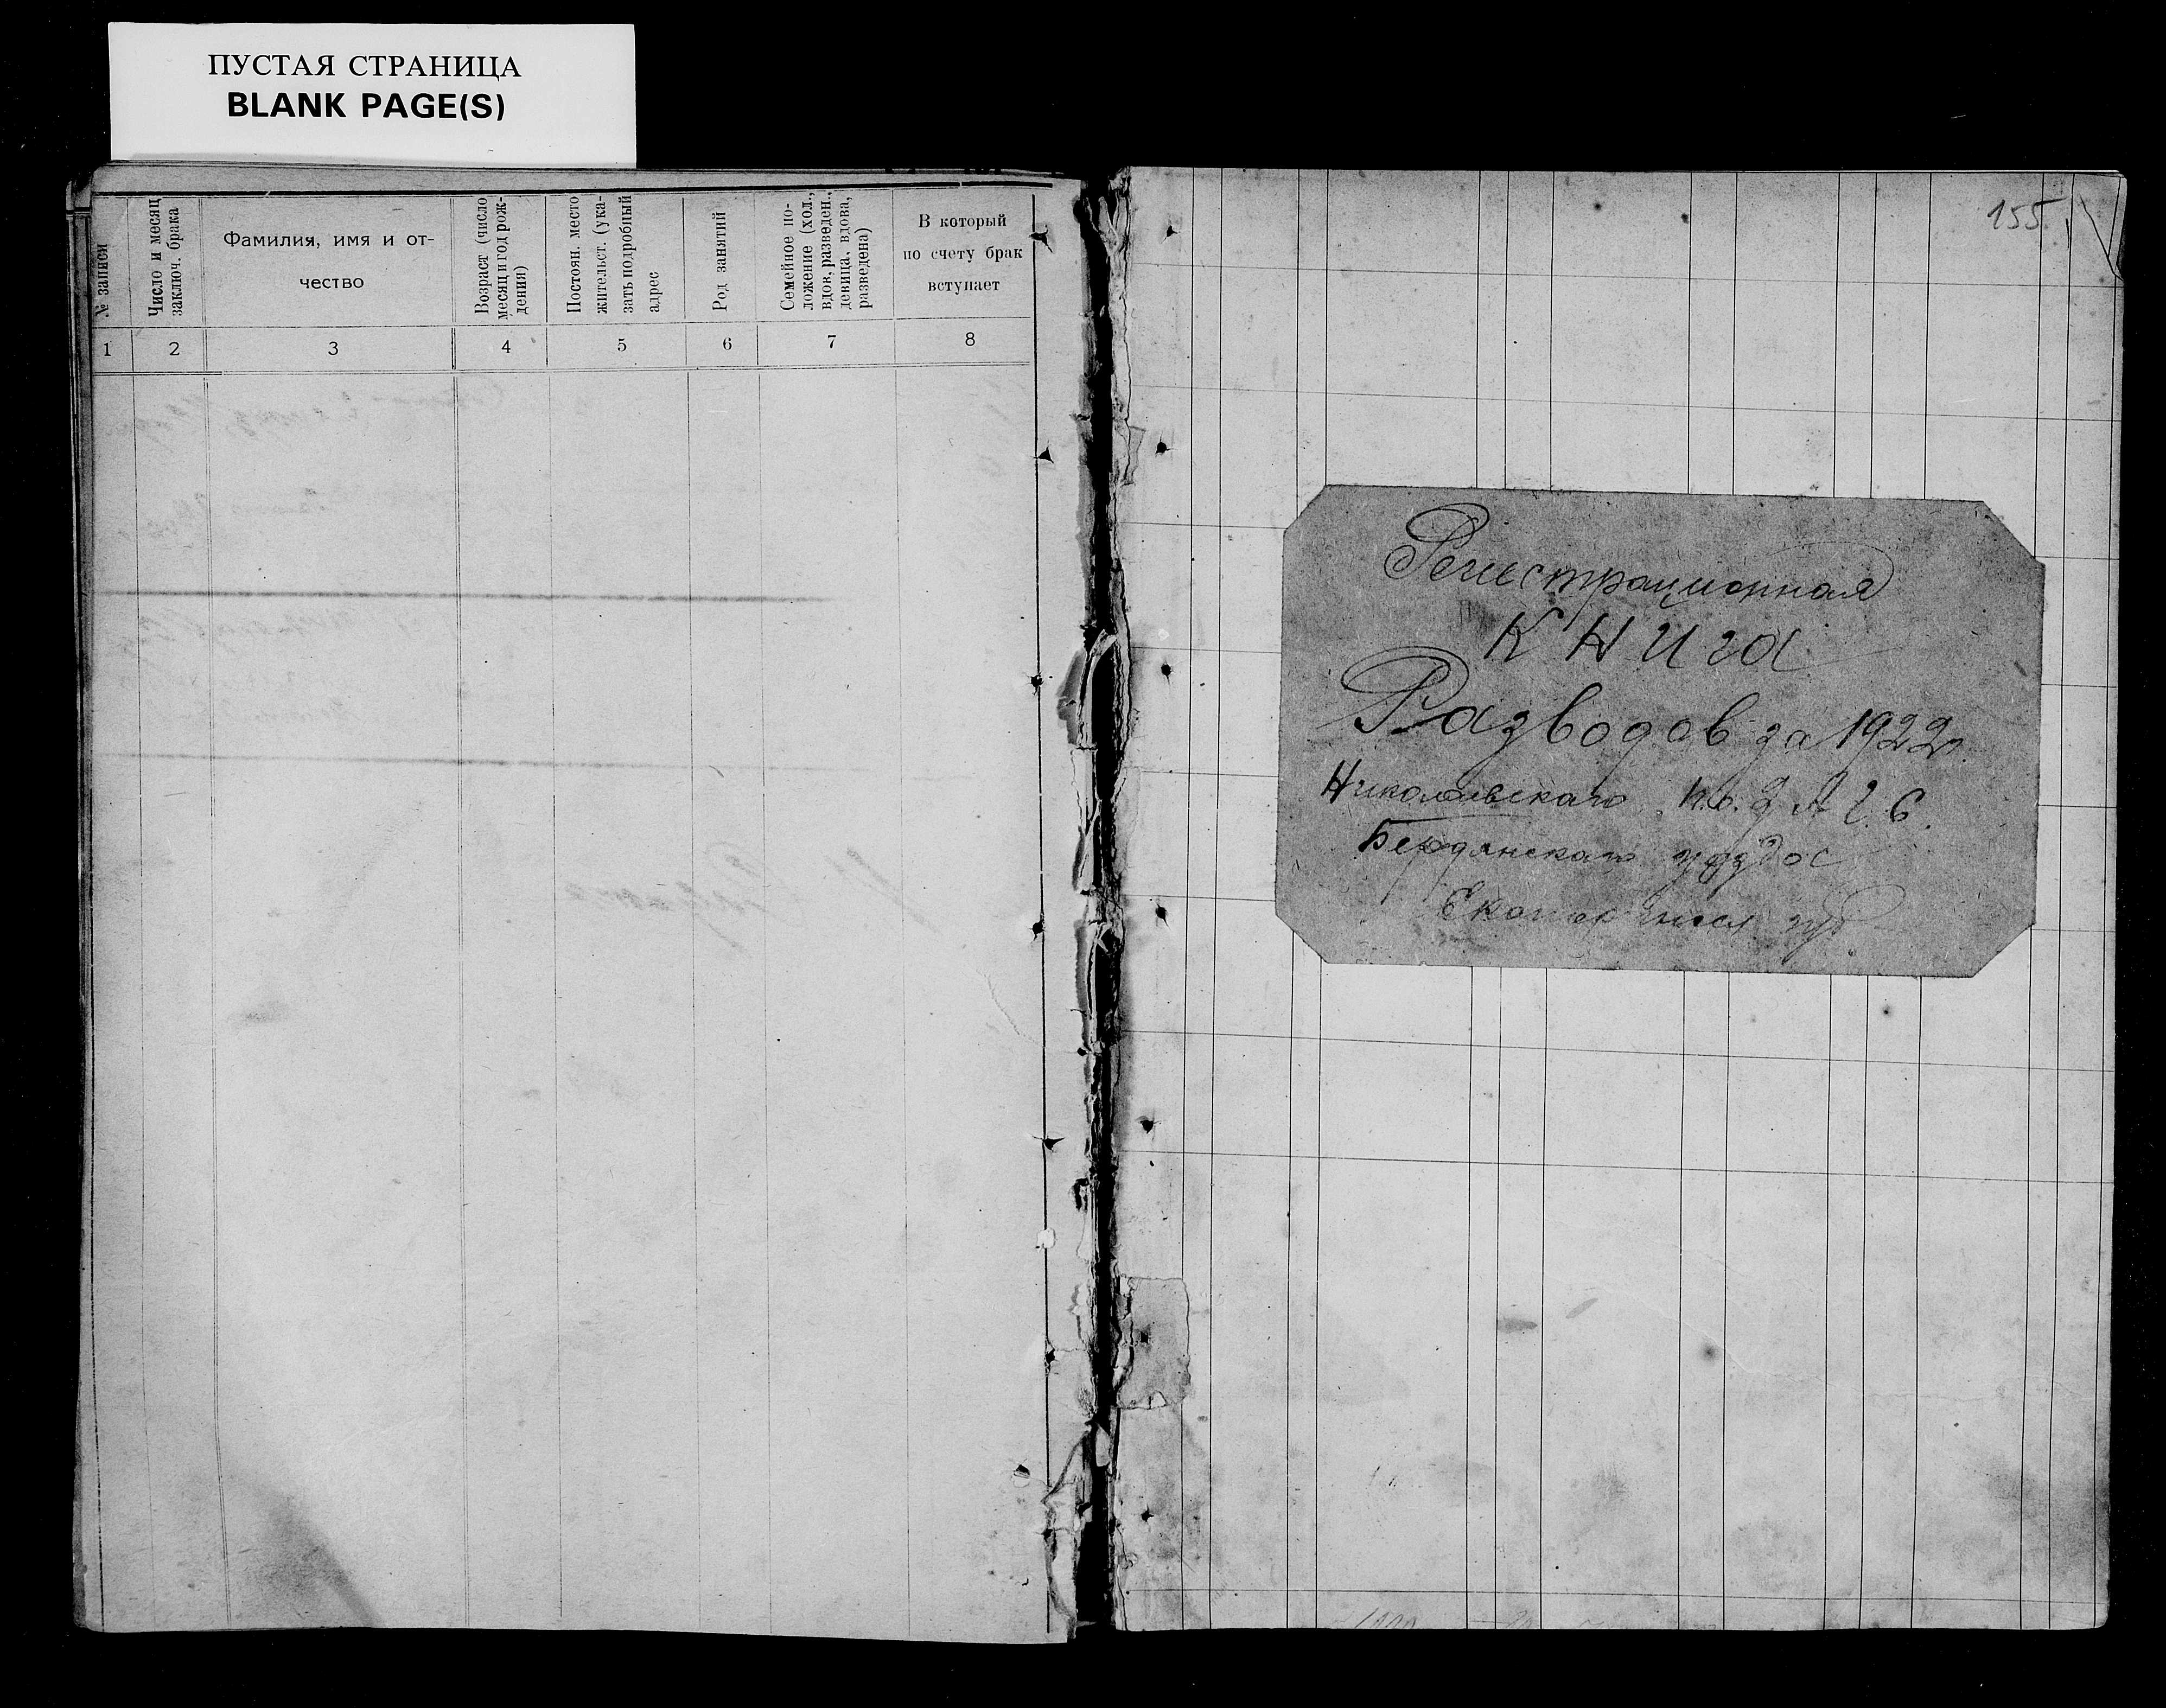 ПУСТАЯ СТРАНИЦА
BLANK PAGE(S)
№ записи
Число и месяц
заключ. брака
Фамилия, имя и от-
чество
Возраст (число
месяц и год рож-
дения)
Постоян. место
жительст. (ука-
зать подробный
адрес
Род занятий
Семейное по-
ложение (хол.,
вдов., разведен.,
девица, вдова,
разведена)
В который
по счету брак
вступает
1 2 3 4 5 6 7 8
155
Регистрационная
Книга
Разводов за 1922
Николаевскаго
Бердянскаго
губ